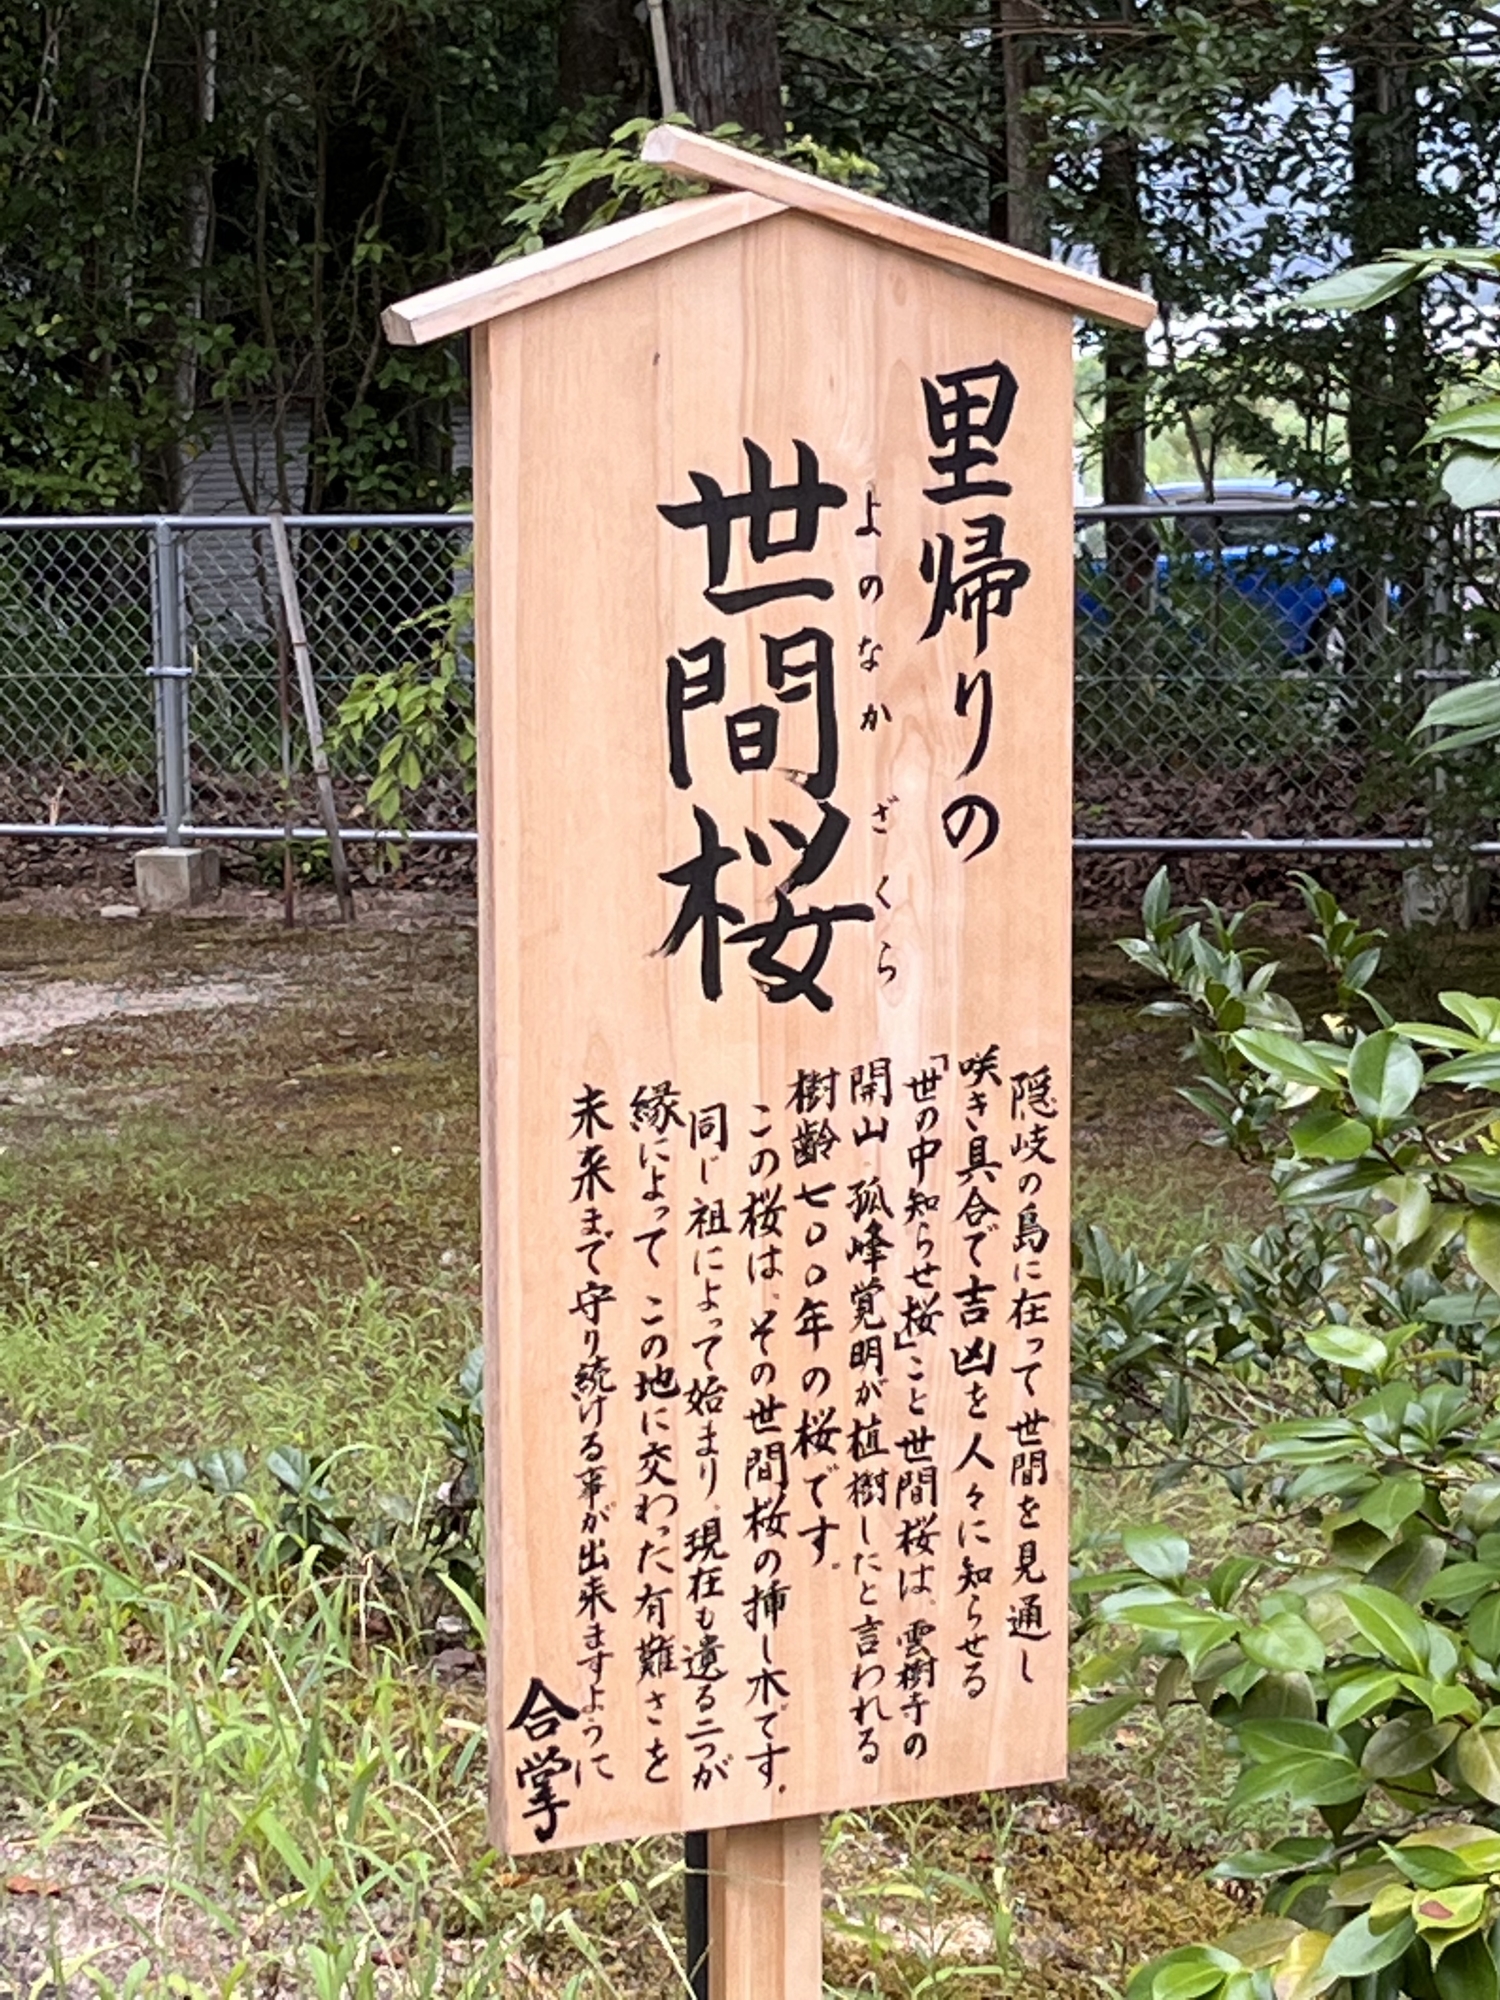 里帰りの
世間桜
よのなかざくら
隠岐の島に在って世間を見通し
咲き具合で吉凶を人々に知らせる
「世の中知らせ桜」こと世間桜は、雲樹寺の
開山 孤峰覚明が植樹したと言われる
樹齢七〇〇年の桜です。
この桜は、その世間桜の挿し木です。
同じ祖によって始まり、現在も遺る二つが
縁によって この地に交わった有難さを
未来まで守り続ける事が出来ますように
合掌